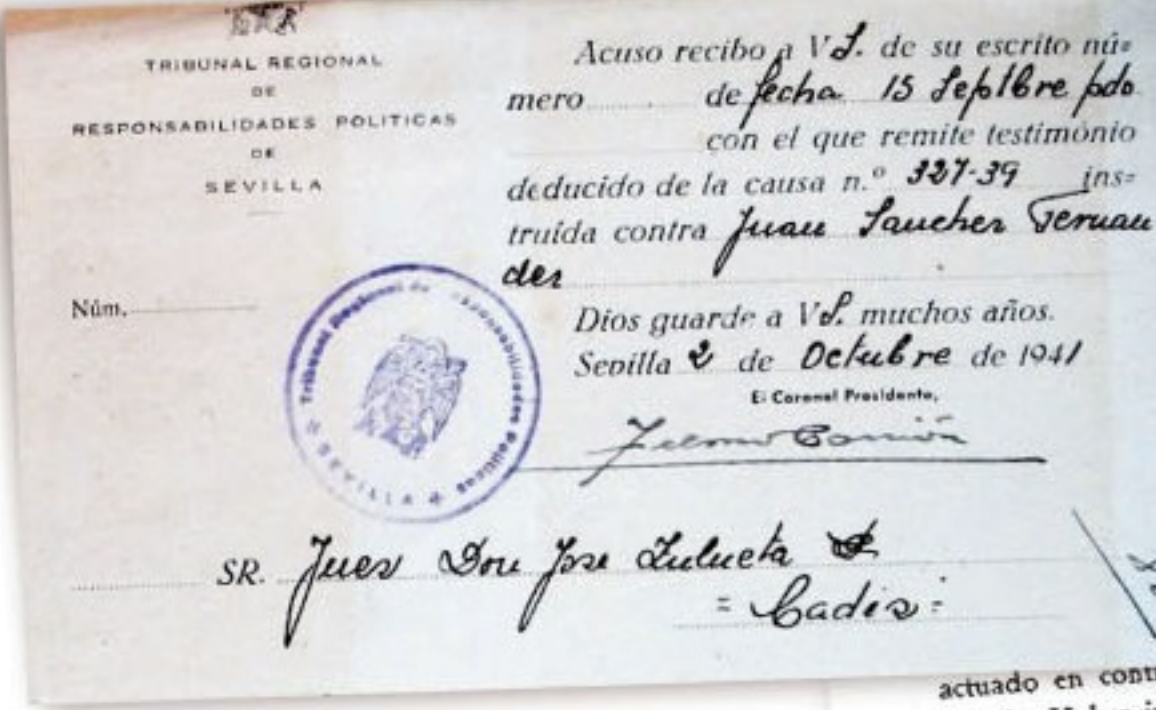 TRIBUNAL REGIONAL
DE
RESPONSABILIDADES POLITICAS
DE
SEVILLA
Núm.
Acuso recibo a VS. de su escrito nú=
mero de fecha 15 Septbre pdo
con el que remite testimonio
deducido de la causa n.º 327-39 ins=
truída contra Juan Sanchez Fernan
dez
Dios guarde a VS. muchos años.
Sevilla 2 de Octubre de 1941
El Coronel Presidente,
Tribunal Regional de Responsabilidades Politicas
SEVILLA
SR. Juez Don Jose Zulueta
= Cadiz =
actuado en cont